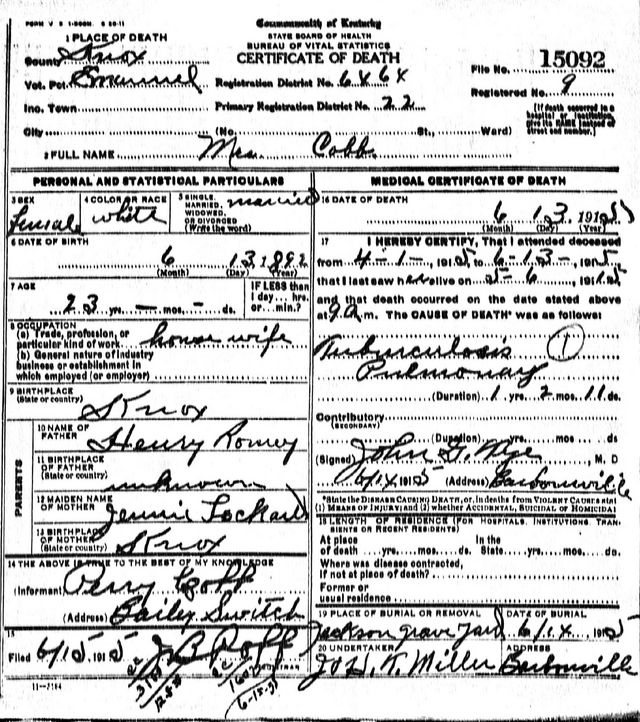 FORM V. S. 1-500M. 6 20-11
Commonwealth of Kentucky
STATE BOARD OF HEALTH
BUREAU OF VITAL STATISTICS
CERTIFICATE OF DEATH
1 PLACE OF DEATH
County Knox
Vot. Pct. Emanuel
Inc. Town
City (No. St., Ward)
Registration District No. 6464
Primary Registration District No. 22
File No. 15092
Registered No. 9
[If death occurred in a hospital or institution, give its NAME instead of street and number.]
2 FULL NAME Mrs. Cobb
PERSONAL AND STATISTICAL PARTICULARS
3 SEX
Female
4 COLOR OR RACE
white
5 SINGLE, MARRIED, WIDOWED, OR DIVORCED
(Write the word)
married
6 DATE OF BIRTH
6 13 1892
(Month) (Day) (Year)
7 AGE
23 yrs. — mos. — ds.
IF LESS than 1 day... hrs. or... min.?
8 OCCUPATION
(a) Trade, profession, or particular kind of work house wife
(b) General nature of industry business or establishment in which employed (or employer)
9 BIRTHPLACE
(State or country)
Knox
PARENTS
10 NAME OF FATHER
Henry
11 BIRTHPLACE OF FATHER
(State or country)
unknown
12 MAIDEN NAME OF MOTHER
Jennie Lockard
13 BIRTHPLACE OF MOTHER
(State or country)
Knox
14 THE ABOVE IS TRUE TO THE BEST OF MY KNOWLEDGE
(Informant) Perry
(Address) Baily Switch
15
Filed 6/15 1915
MEDICAL CERTIFICATE OF DEATH
16 DATE OF DEATH
6 13 1915
(Month) (Day) (Year)
17 I HEREBY CERTIFY, That I attended deceased
from 4-1-, 1915 to 6-13-, 1915
that I last saw her alive on 5-6, 1915
and that death occurred on the date stated above
at 9 a.m. The CAUSE OF DEATH* was as follows:
Tuburculosis 1
Pulmonary
(Duration) 1 yrs. 2 mos. 11 ds.
Contributory
(SECONDARY)
(Duration) yrs. mos. ds
(Signed) John G. Nye, M. D
6/14 1915 (Address) Barbourville
*State the DISEASE CAUSING DEATH, or, in deaths from VIOLENT CAUSES state (1) MEANS OF INJURY; and (2) whether ACCIDENTAL, SUICIDAL OF HOMICIDAL
18 LENGTH OF RESIDENCE (FOR HOSPITALS, INSTITUTIONS, TRANSIENTS OR RECENT RESIDENTS)
At place of death yrs. mos. ds. In the State yrs. mos. ds.
Where was disease contracted, if not at place of death?
Former or usual residence
19 PLACE OF BURIAL OR REMOVAL
Jackson grave yard
DATE OF BURIAL
6/14 1915
20 UNDERTAKER
Miller
ADDRESS
Barbourville
11-3184